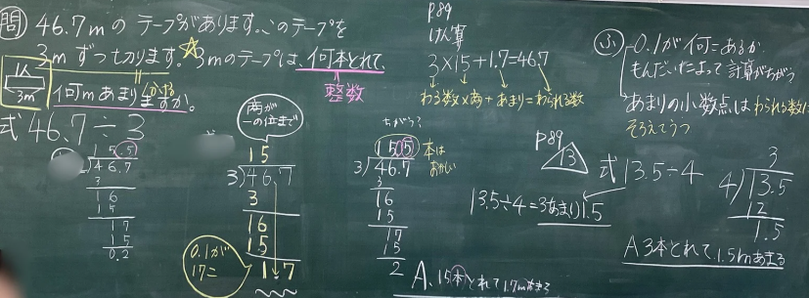 問 46.7mの テープがあります。このテープを
3m ずつ切ります。☆3mのテープは、何本とれて、
何mあまりますか。
整数
1本
3m
式 46.7÷3
15.5
3)46.7
3
16
15
17
15
0.2
商が
一の位まで
15
3)46.7
3
16
15
1.7
0.1が
17こ
ちがう?
15.5 本は
おかしい
3)46.7
3
16
15
17
15
2
A、15本とれて1.7mあまる
P89
けん算
3×15+1.7=46.7
わる数×商+あまり=わられる数
P89
13
式 13.5÷4
13.5÷4=3あまり1.5
3
4)13.5
12
1.5
A 3本とれて、1.5mあまる
ふ 0.1が何こあるか
もんだいによって計算がちがう
あまりの小数点はわられる数に
そろえてうつ